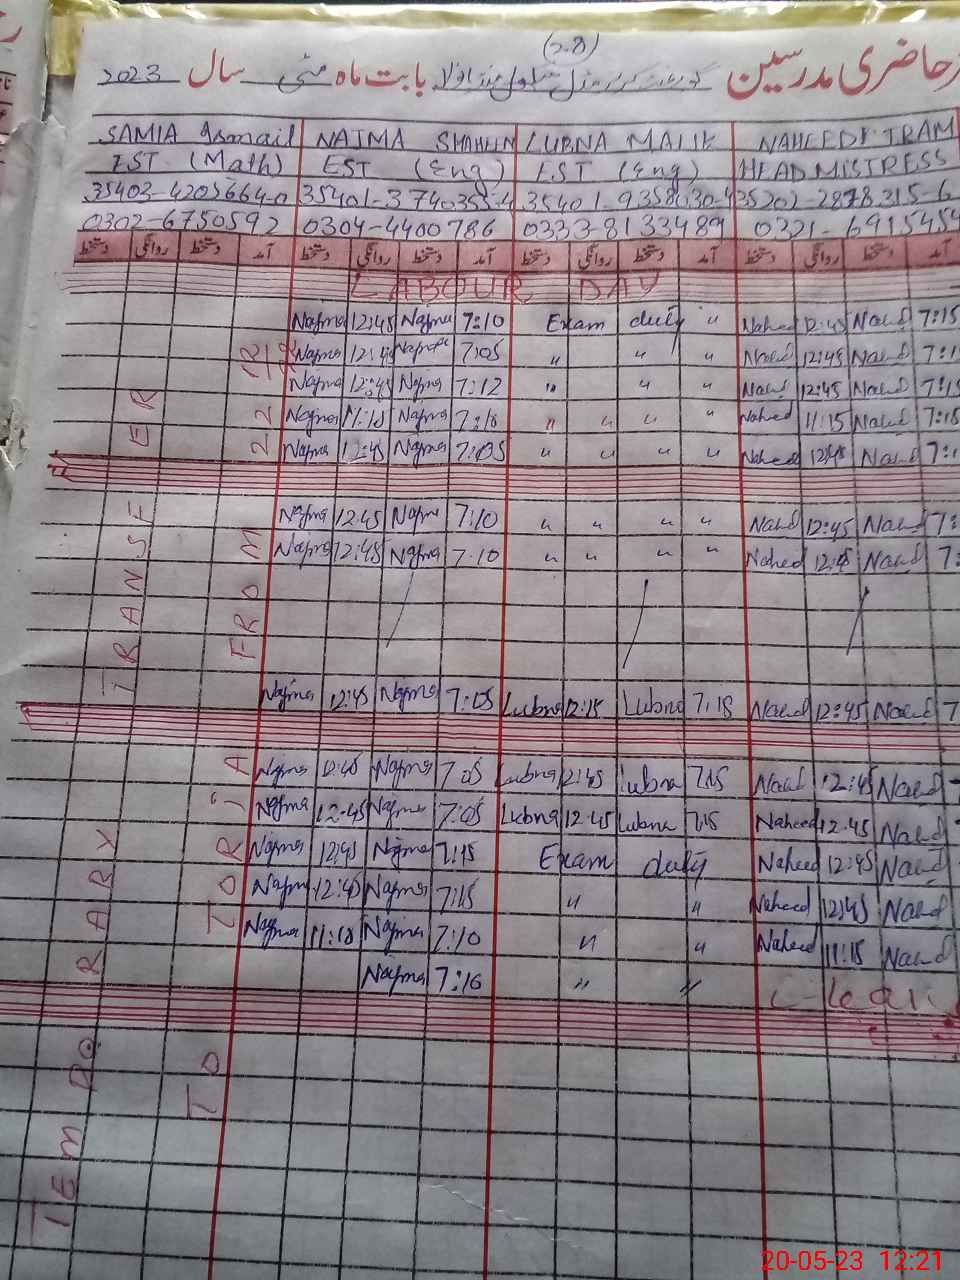 (28)
حاضری مدرسین گورنمنٹ گرلز مڈل سکول بابت ماہ مئی سال 2023
SAMIA Ismail NAJMA SHAHEEN LUBNA MALIK NAHEED IKRAM
EST (Math) EST (Eng) EST (Eng) HEADMISTRESS
35403-4205664-0 35401-3740355-4 35401-9358030-4 35202-2878315-6
0302-6750592 0304-4400786 0333-8133489 0321-6915454
دستخط روانگی دستخط آمد دستخط روانگی دستخط آمد دستخط روانگی دستخط آمد دستخط روانگی دستخط آمد
LABOUR DAY
Najma 12:45 Najma 7:10 Exam duty " Naheed 12:45 Naheed 7:15
Najma 12:45 Najma 7:05 " " " Naheed 12:45 Naheed 7:1
Najma 12:45 Najma 7:12 " " " Naheed 12:45 Naheed 7:15
Najma 11:15 Najma 7:18 " " " " Naheed 11:15 Naheed 7:15
Najma 12:45 Najma 7:05 " " " " Naheed 12:45 Naheed 7:1
Najma 12:45 Najma 7:10 " " " " Naheed 12:45 Naheed 7:
Najma 12:45 Najma 7:10 " " " " Naheed 12:45 Naheed 7:
Najma 12:45 Najma 7:05 Lubna 12:15 Lubna 7:18 Naheed 12:45 Naheed 7
Najma 12:45 Najma 7:05 Lubna 12:45 Lubna 7:15 Naheed 12:45 Naheed
Najma 12:45 Najma 7:05 Lubna 12:45 Lubna 7:15 Naheed 12:45 Naheed
Najma 12:45 Najma 7:15 Exam duty Naheed 12:45 Naheed
Najma 12:45 Najma 7:15 " " Naheed 12:45 Naheed
Najma 11:18 Najma 7:10 " " Naheed 11:15 Naheed
Najma 7:16 " " C-Leav
TEMPORARY TRANSFER
TO TORJA FROM 22
20-05-23 12:21